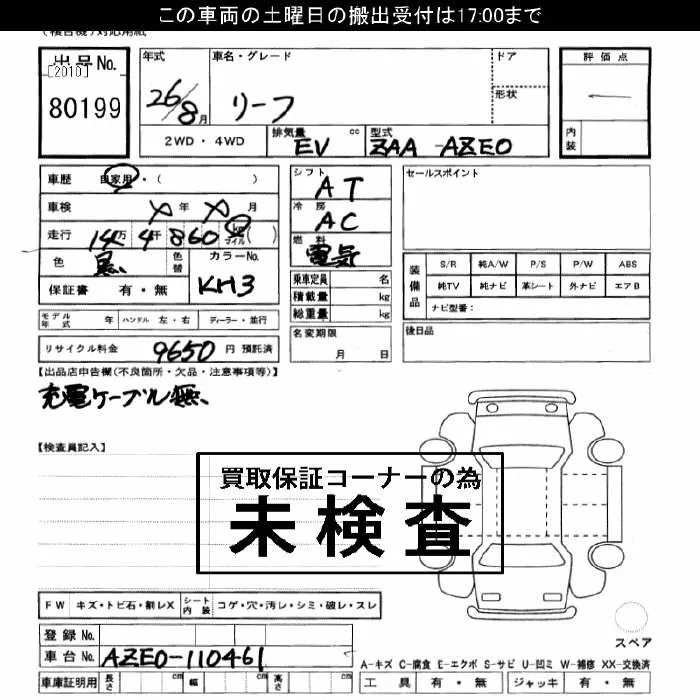 この車両の土曜日の搬出受付は17:00まで
出品No.
[2010]
80199
年式 26/8月
車名・グレード リーフ
ドア
形状
評価点
内装
2WD・4WD
排気量 EV cc
型式 ZAA-AZE0
車歴 自家用・( )
車検 年 月
走行 14万4千860 km マイル ( )
色 黒 色替
カラーNo. KH3
保証書 有・無
シフト AT
冷房 AC
燃料 電気
乗車定員 名
積載量 kg
総重量 kg
セールスポイント
装備品
S/R 純A/W P/S P/W ABS
純TV 純ナビ 革シート 外ナビ エアB
ナビ型番：
モデル年式 年 ハンドル 左・右 ディーラー・並行
名変期限 月 日
後日品
リサイクル料金 9650 円 預託済
【出品店申告欄(不良箇所・欠品・注意事項等)】
充電ケーブル無、
【検査員記入】
買取保証コーナーの為
未検査
FW キズ・トビ石・割レX シート内装 コゲ・穴・汚レ・シミ・破レ・スレ
登録No.
車台No. AZE0-110461
スペア
A-キズ C-腐食 E-エクボ S-サビ U-凹ミ W-補修 XX-交換済
車庫証明用 長さ cm 幅 cm 高さ cm
工具 有・無 ジャッキ 有・無